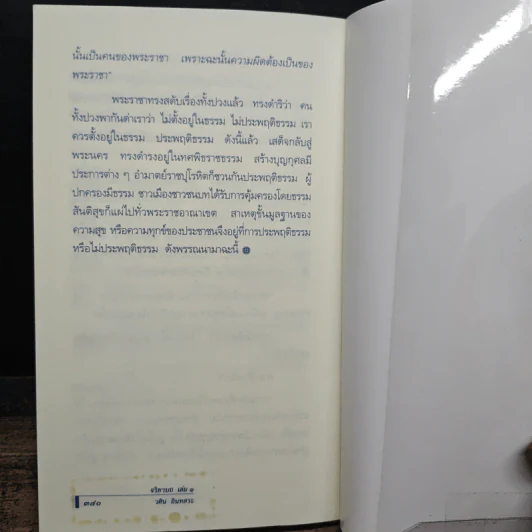 นั้นเป็นคนของพระราชา เพราะฉะนั้นความผิดต้องเป็นของ
พระราชา"
พระราชาทรงสดับเรื่องทั้งปวงแล้ว ทรงดำริว่า คน
ทั้งปวงพากันด่าเราว่า ไม่ตั้งอยู่ในธรรม ไม่ประพฤติธรรม เรา
ควรตั้งอยู่ในธรรม ประพฤติธรรม ดังนี้แล้ว เสด็จกลับสู่
พระนคร ทรงดำรงอยู่ในทศพิธราชธรรม สร้างบุญกุศลมี
ประการต่าง ๆ อำมาตย์ราชปุโรหิตก็ชวนกันประพฤติธรรม ผู้
ปกครองมีธรรม ชาวเมืองชาวชนบทได้รับการคุ้มครองโดยธรรม
สันติสุขก็แผ่ไปทั่วพระราชอาณาเขต สาเหตุขั้นมูลฐานของ
ความสุข หรือความทุกข์ของประชาชนจึงอยู่ที่การประพฤติธรรม
หรือไม่ประพฤติธรรม ดังพรรณนามาฉะนี้
จริยาบถ เล่ม ๑
๓๘๐ วศิน อินทสระ